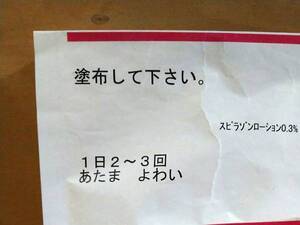 塗布して下さい。
スピラゾンローション0.3%
1日2～3回
あたま よわい